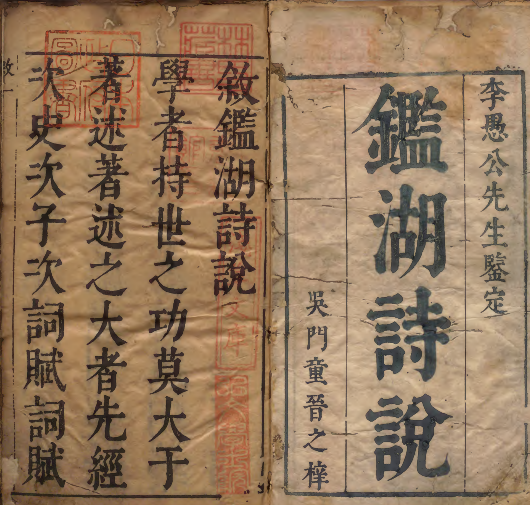 李愚公先生鑒定
鑑湖詩說
吳門童晉之梓
敘鑑湖詩說
學者持世之功莫大于
著述著述之大者先經
次史次子次詞賦詞賦